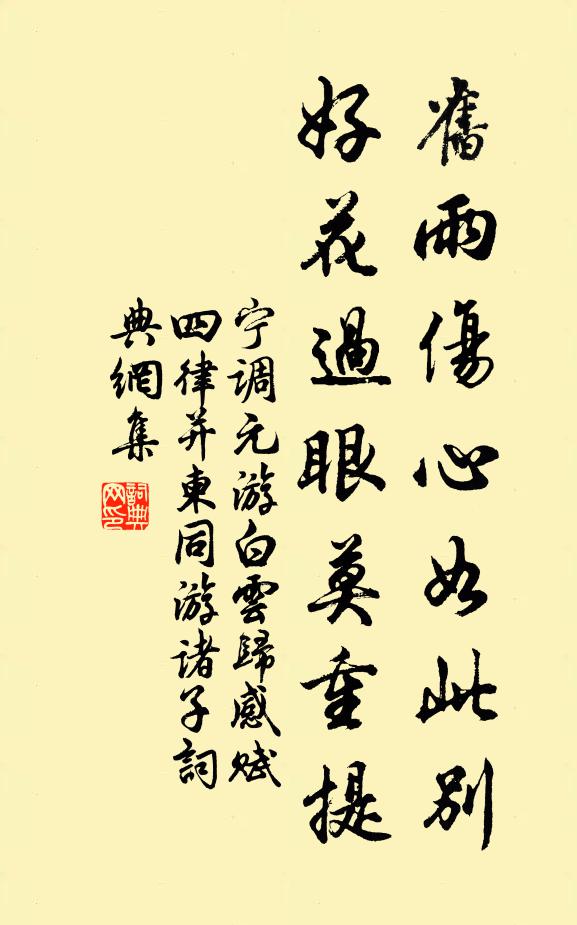 舊雨傷心如此別
好花過眼莫重提
宁调元游白雲歸感赋
四律并東同游诸子詞
典網集
詞典網印